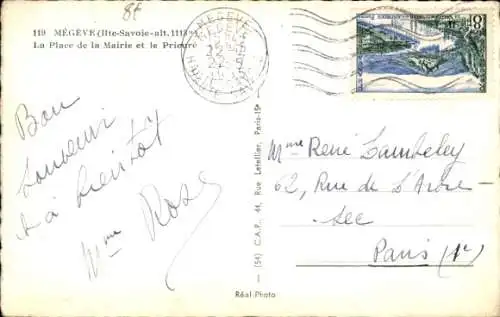 8f
119 MÉGÈVE (Hte-Savoie-alt. 1113m)
La Place de la Mairie et le Prieuré
MEGEVE
HAUTE SAVOIE
8F
Bon
souvenir
& à bientôt
Mme Rose
(54) C.A.P., 44, Rue Letellier, Paris-15e
Mme René
62, Rue de l'Arbre
Sec
Paris (1r)
Réal-Photo